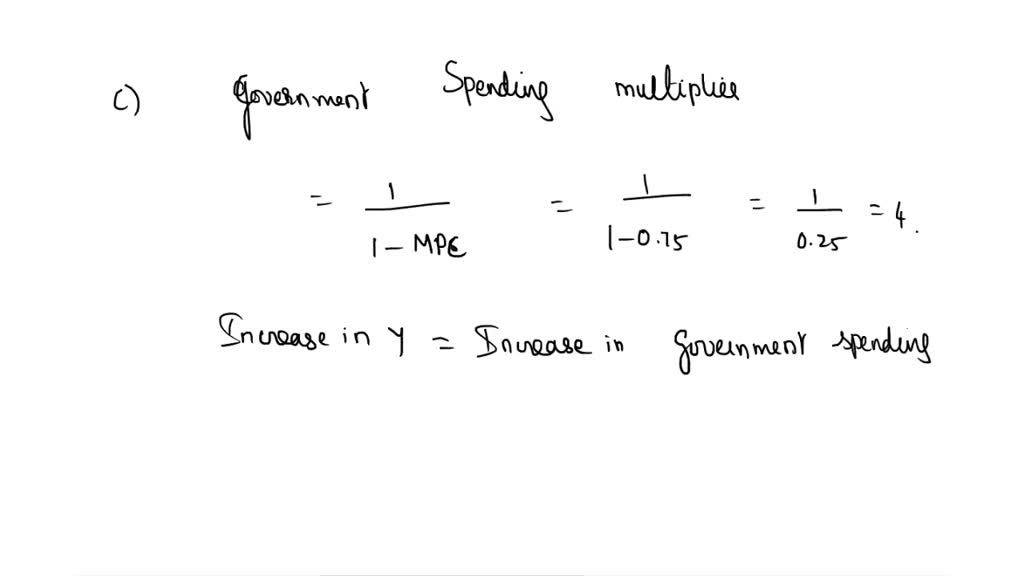 c) Government Spending multiplier
= 1 / 1 - MPC = 1 / 1-0.75 = 1 / 0.25 = 4.
Increase in Y = Increase in Government spending